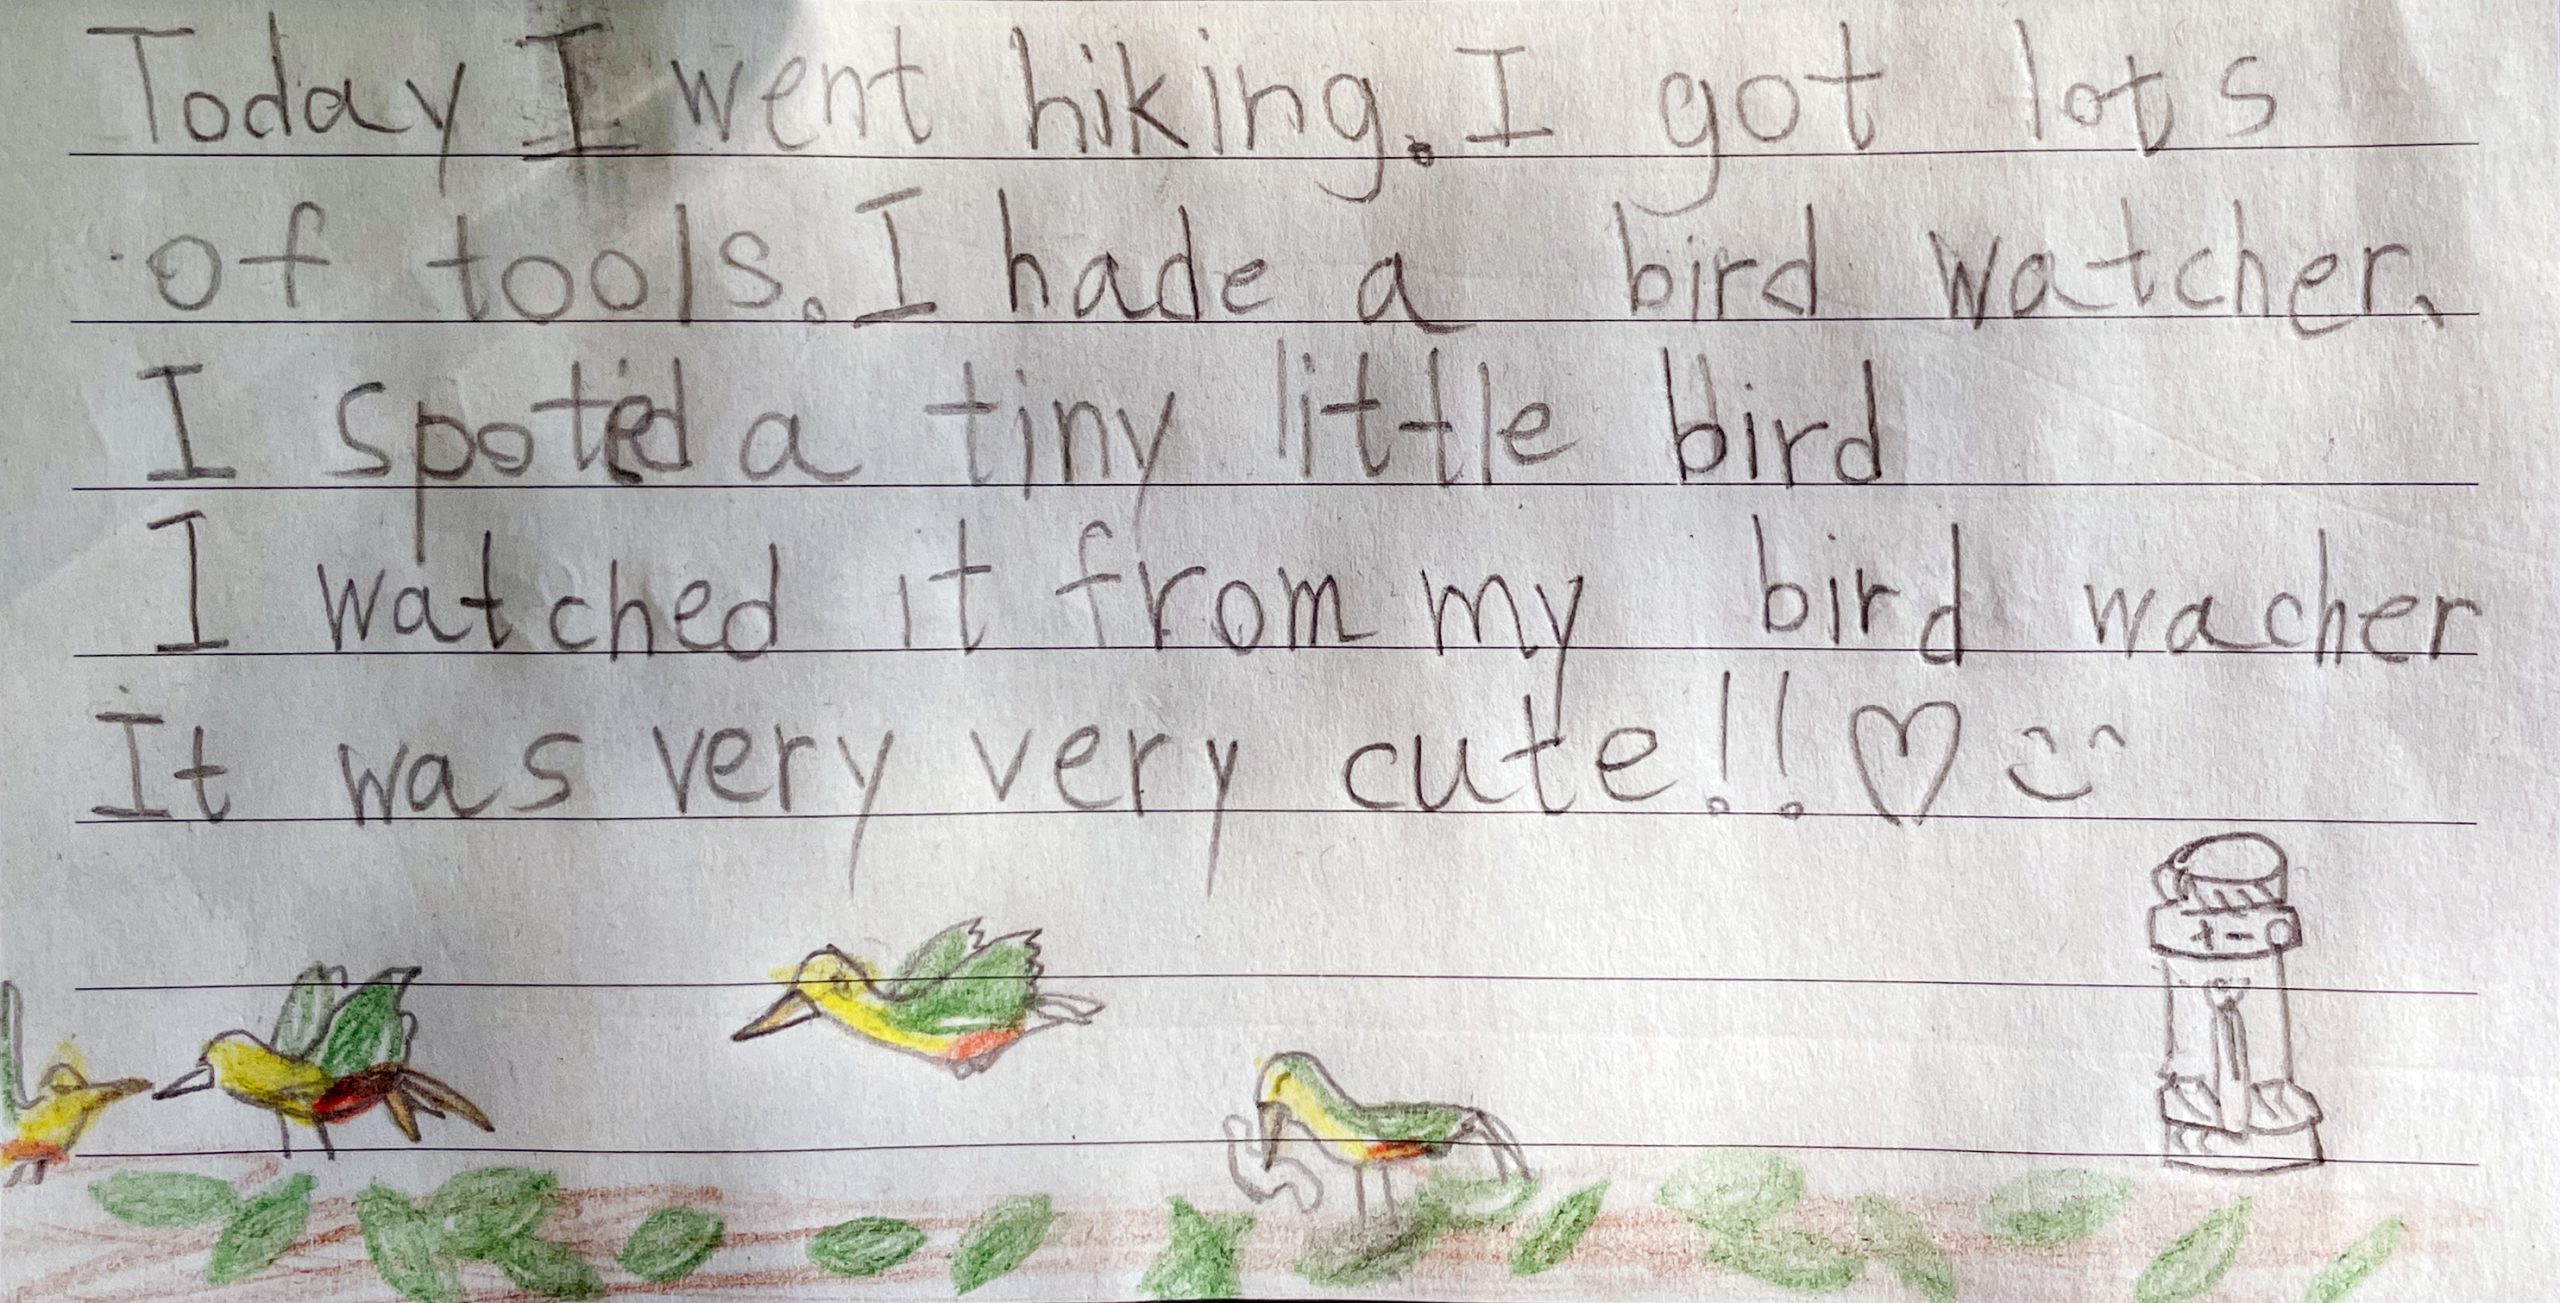 Today I went hiking. I got lots
of tools. I hade a bird watcher.
I spoted a tiny little bird
I watched it from my bird wacher
It was very very cute!! ♡
+-